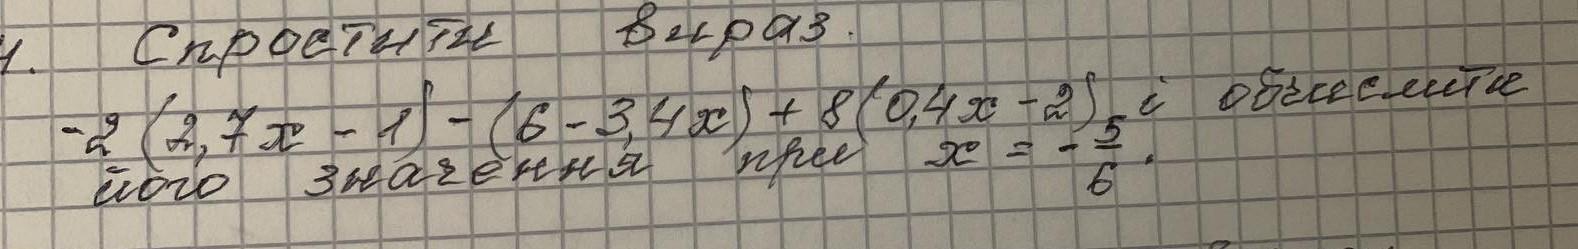 4. Спростити вираз.
-2(2,7x - 1) - (6 - 3,4x) + 8(0,4x - 2) і обчислити
його значення при x = -5/6.